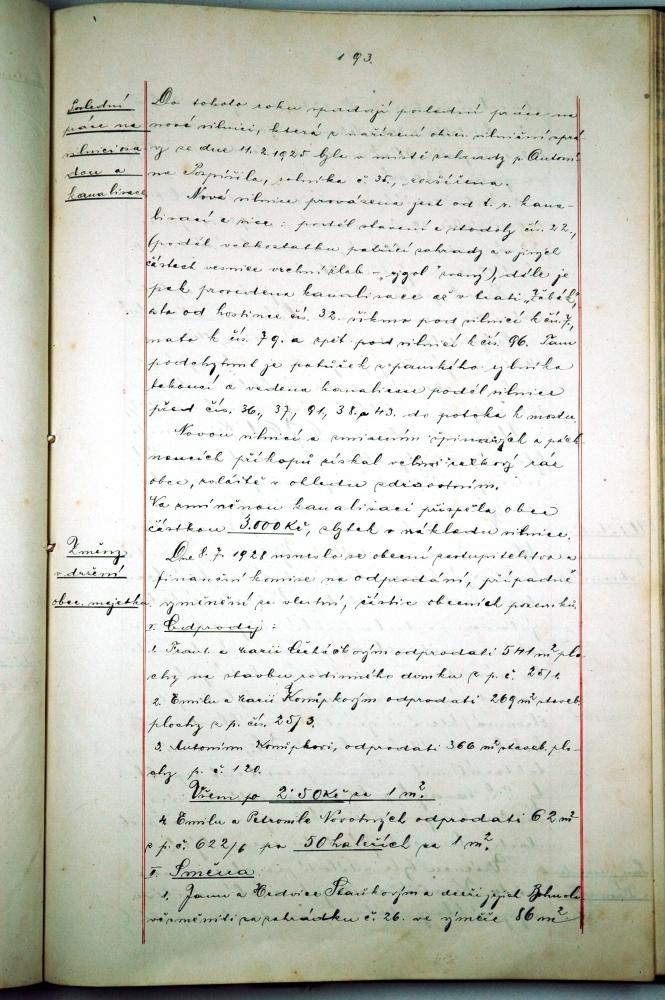 193.
Poslední
práce na
silnici osa
dou a
kanalisace
Do tohoto roku spadají poslední práce na
nové silnici, která z nařízení okres. silniční sprá
vy ze dne 11. 2. 1925 byla v místě zahrady p. Antoní
na Pospíšila, rolníka č. 35, rozšířena.
Nová silnice provázena jest od t. r. kana-
lisací a sice: podél stavení a stodoly čís. 22.,
(podél velkostatku patřící zahrady a v jiných
částech vesnice vrchní žlab - "rygol" zvaný), dále je
pak provedena kanalisace až v trati "Žabák",
a to od hostince čís. 32. šikmo pod silnicí k čís. 7.,
na to k čís. 79. a zpět pod silnicí k čís. 86. Tam
podchycený je potůček z panského rybníka
tekoucí a vedena kanalisace podél silnice
před čís. 36., 37., 91., 38. a 43. do potoka k mostu.
Novou silnicí a zmizením špinavých a pách
noucích příkopů získal velmi celkový ráz
obce, zvláště v ohledu zdravotním.
Na zmíněnou kanalisaci přispěla obec
částkou 3.000 Kč, zbytek z nákladu silnice.
Změny
v držení
obec. majetku.
Dne 8. 7. 1928 usneslo se obecní zastupitelstvo a
finanční komise na odprodání, případně
výměnění za vlastní, částic obecních pozemků.
I. Odprodej:
1. Frant. a Marii Čecháčkovým odprodati 541 m² plo-
chy na stavbu rodinného domku z p. č. 25/1.
2. Emilu a Marii Konůpkovým odprodati 269 m² staveb.
plochy z p. čís. 25/3.
3. Antonínu Konůpkovi, odprodati 366 m² staveb. plo-
chy p. č. 120.
Všem po 2·50 Kč za 1 m².
4. Emilu a Petronile Novotných odprodati 62 m²
z p. č. 622/6 po 50 haléřích za 1 m².
II. Směna
1. Janu a Hedvice Staňkovým a dceři jejich Bohumile
vésměniti za zahrádku č. 26. ve výměře 86 m².